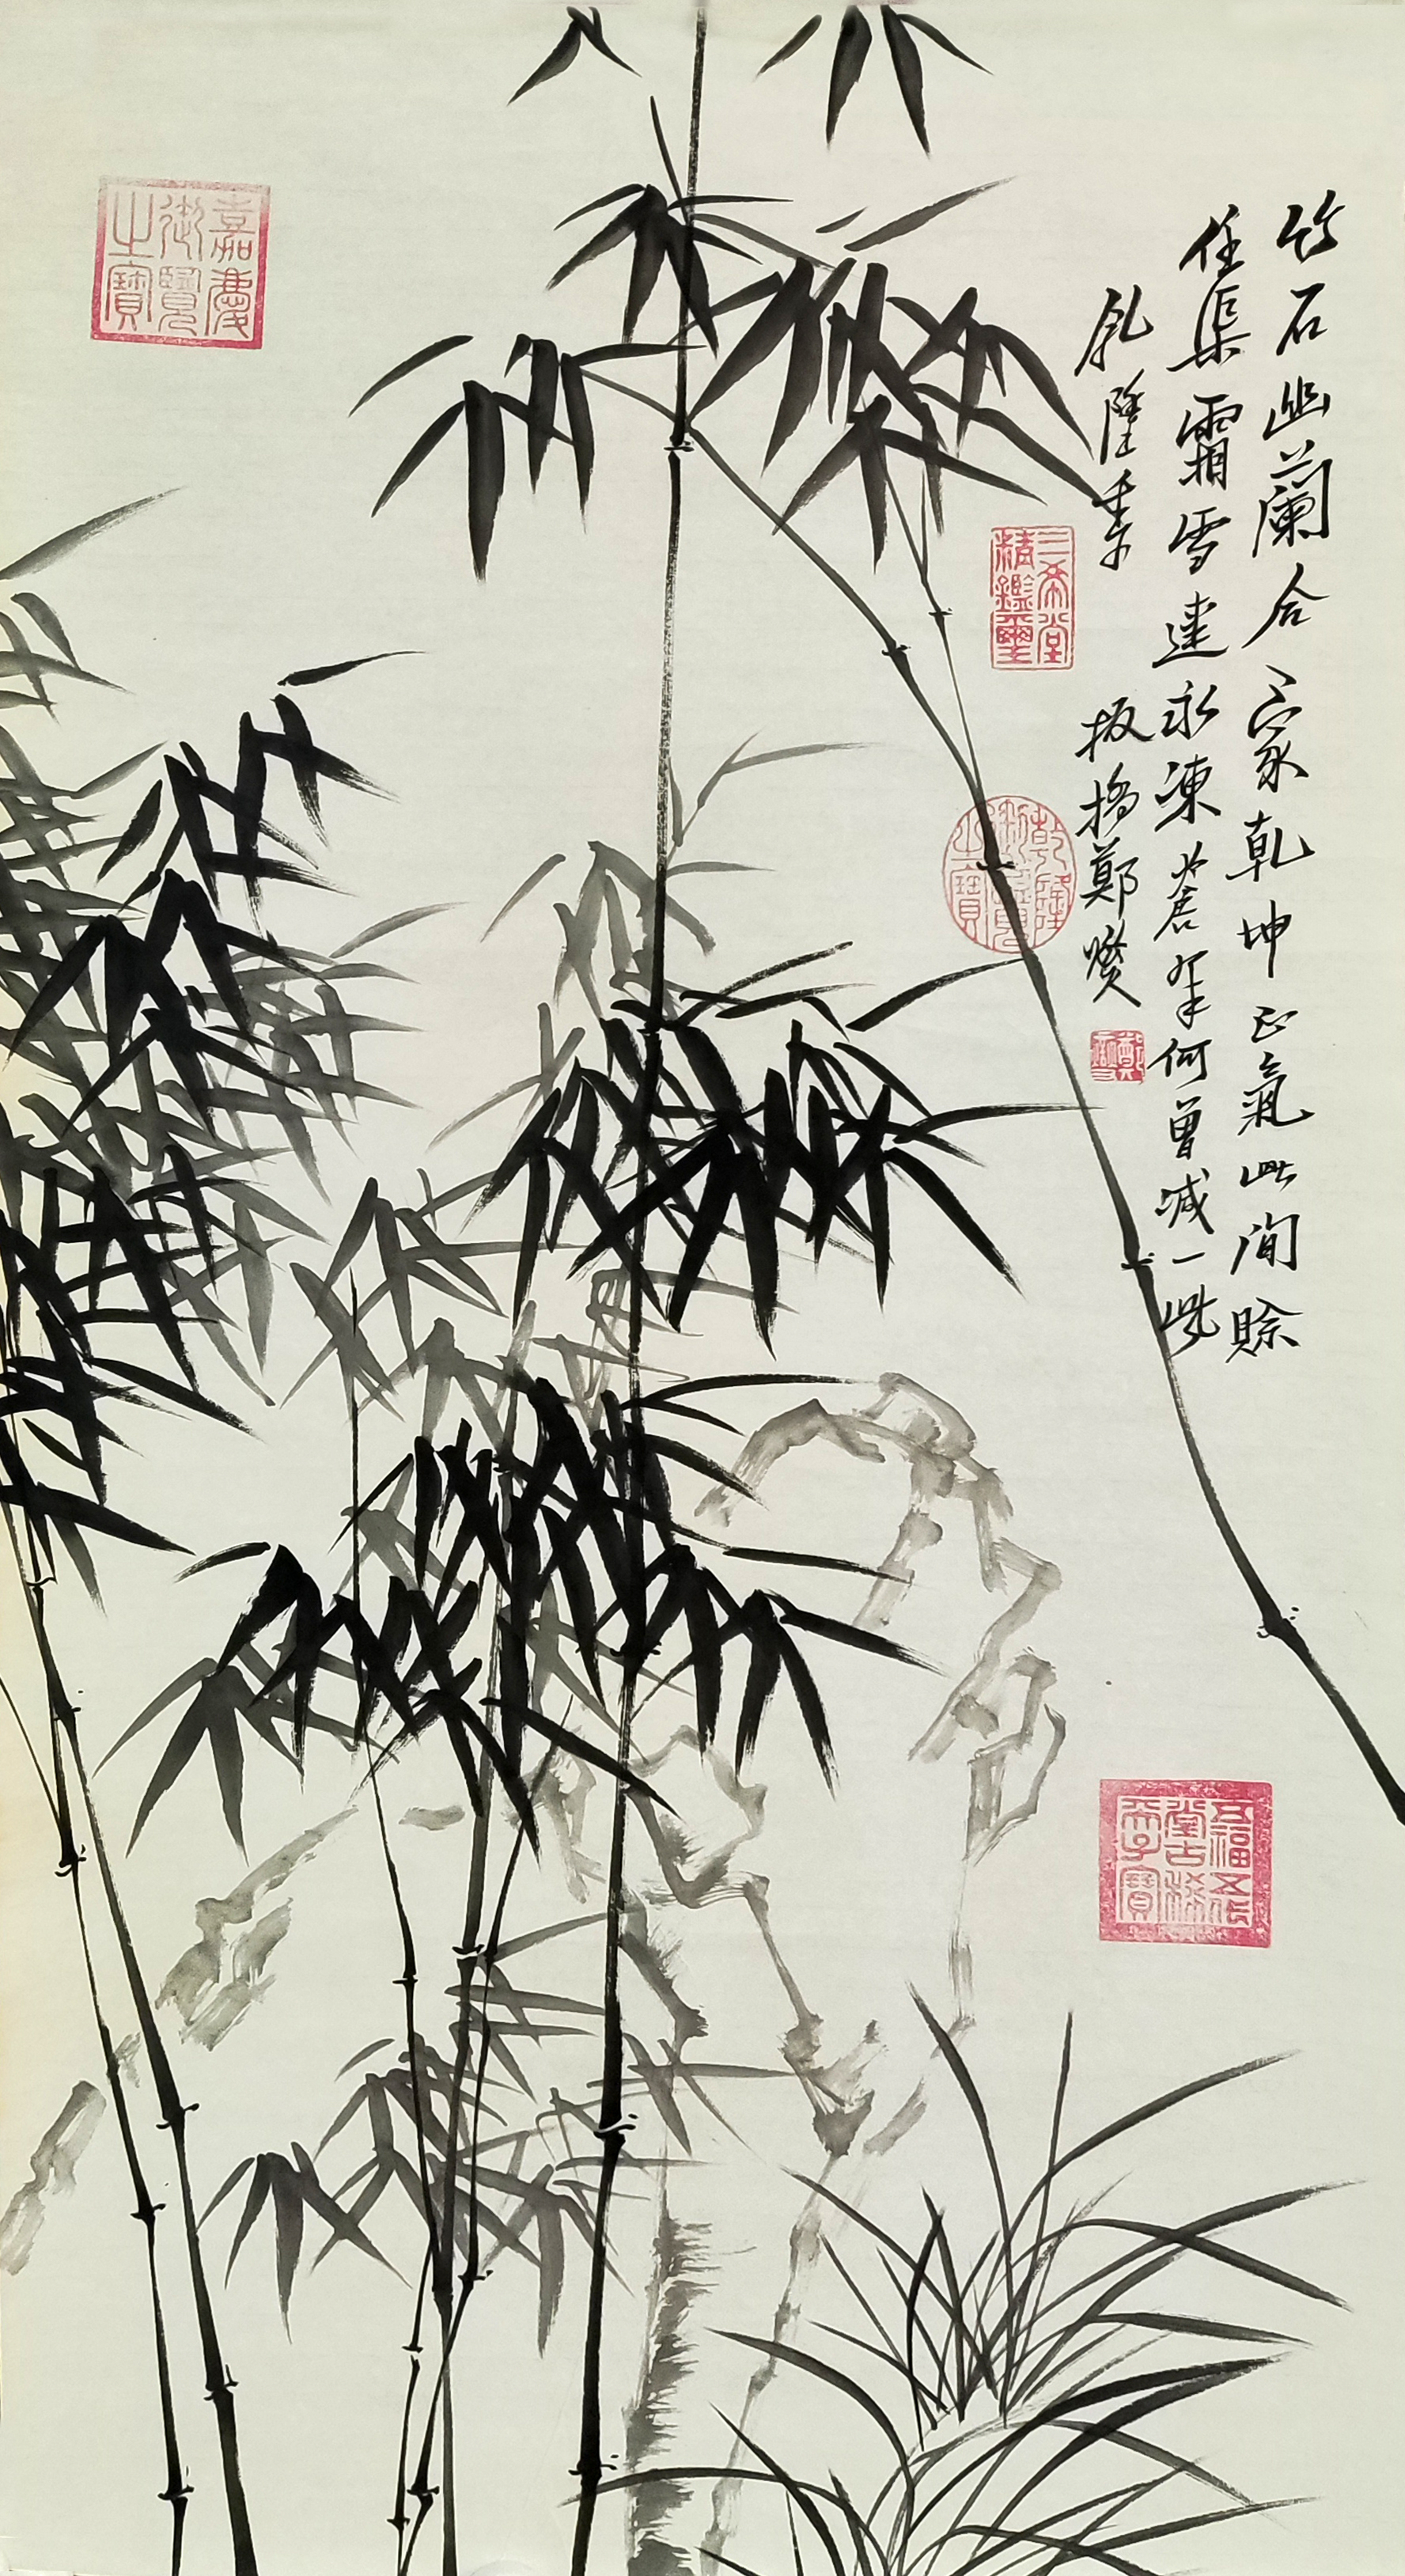 竹石幽蘭合一家乾坤正氣此間賒
任渠霜雪連冰凍蒼翠何曾減一些
乹隆季
板橋鄭燮
嘉慶
御覽
之寶
三希堂
精鑑璽
乾隆
御覽
之寶
鄭
燮
五福五代
堂古稀
天子寶